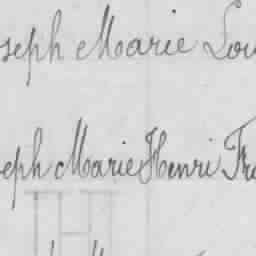 seph Marie Lou
eph Marie Henri Fra